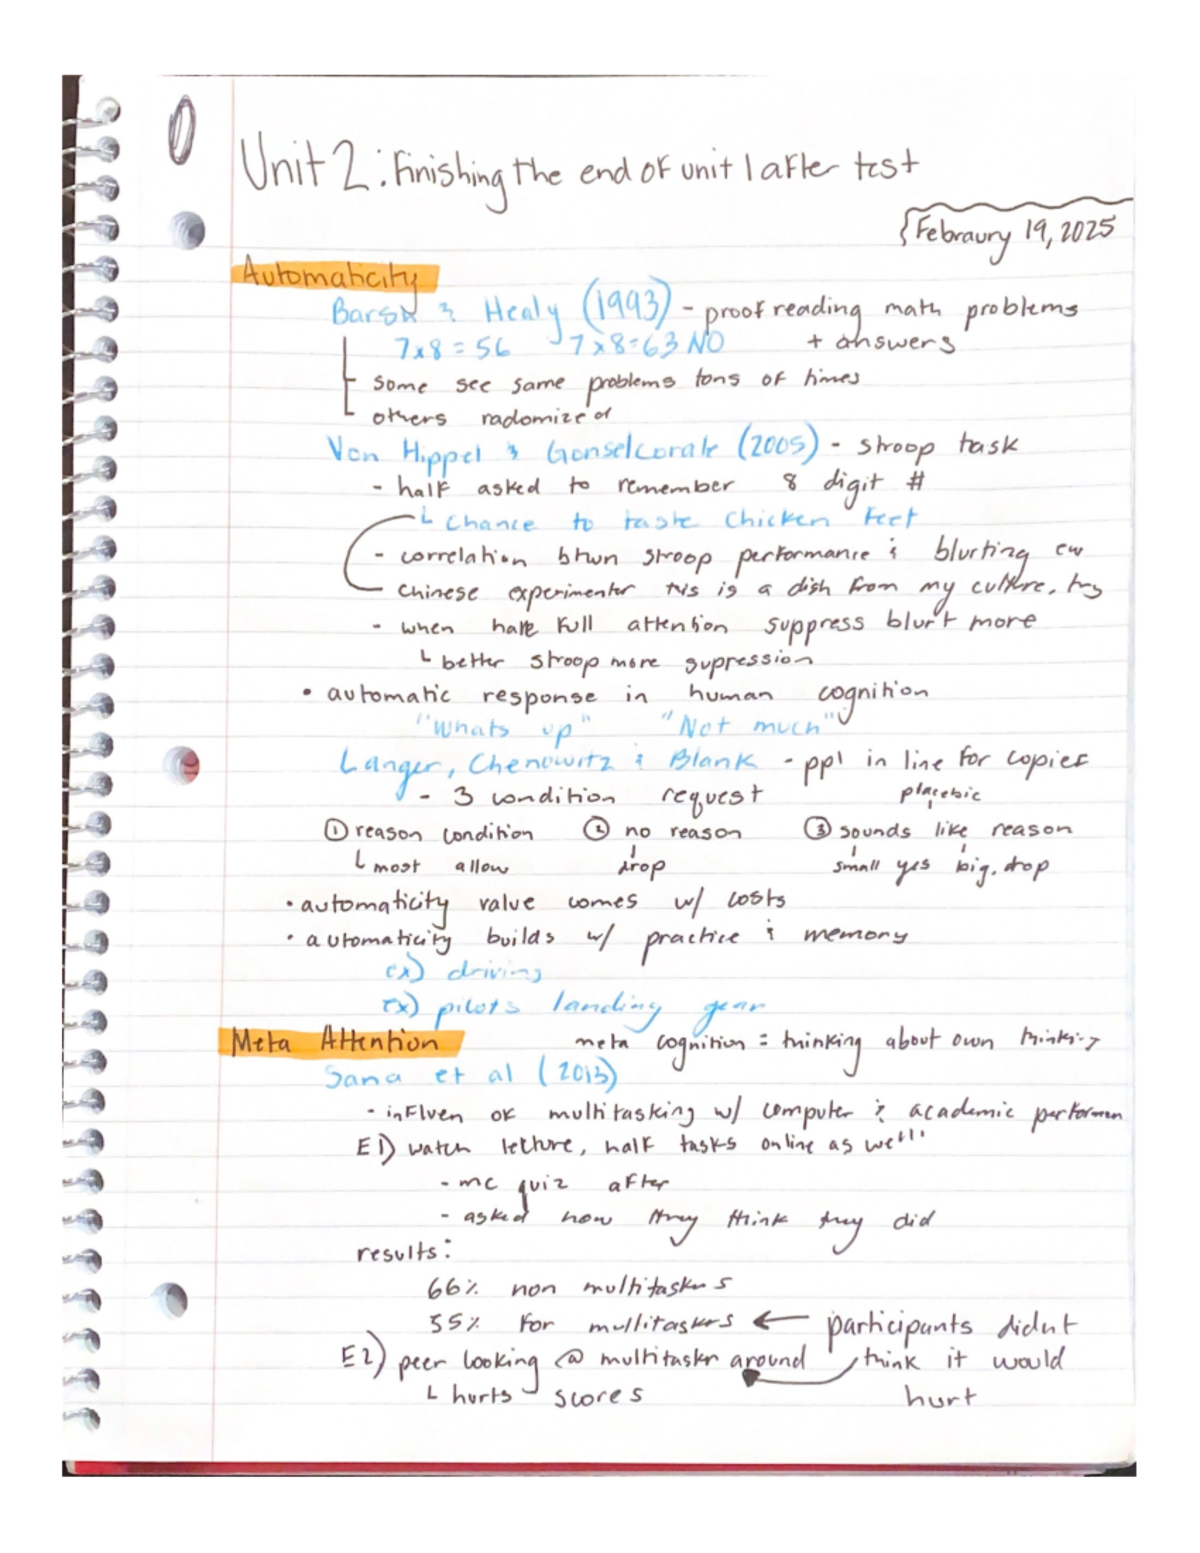 Unit 2: Finishing the end of unit 1 after test
Febraury 19, 2025
Automaticity
Barsn & Healy (1993) - proof reading math problems
7x8=56 7x8=63 NO + answers
some see same problems tons of times
others radomized
Von Hippel & Gonselcorale (2005) - stroop task
- half asked to remember 8 digit #
Chance to taste Chicken feet
- correlation btwn stroop performance & blurting ew
chinese experimenter this is a dish from my culture, try
- when have full attention suppress blurt more
better stroop more supression
• automatic response in human cognition
"Whats up" "Not much"
Langer, Chenowitz & Blank - ppl in line for copies
- 3 condition request placebic
① reason condition ② no reason ③ sounds like reason
most allow drop small yes big. drop
• automaticity value comes w/ costs
• automaticity builds w/ practice & memory
ex) driving
ex) pilots landing gear
Meta Attention meta cognition = thinking about own thinking
Sana et al (2013)
- influen of multitasking w/ computer & academic performan
E1) watch lecture, half tasks online as well
- mc quiz after
- asked how they think they did
results:
66% non multitaskers
55% for multitaskers ← participants didnt
E2) peer looking @ multitaskr around think it would
hurts scores hurt